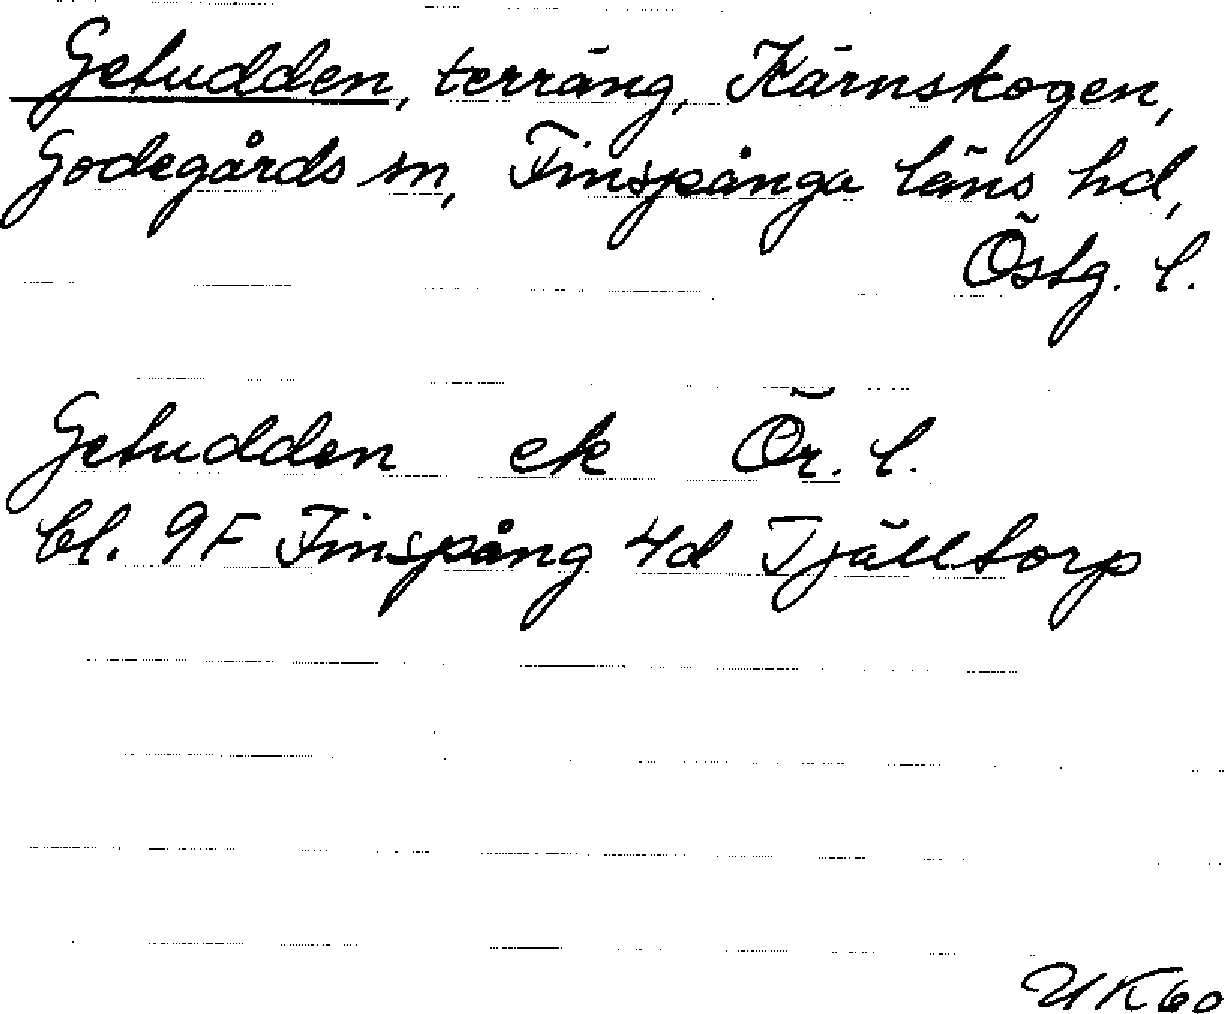 Getudden, terräng, Kärnskogen,
Godegårds sn, Finspånga läns hd,
Östg. l.
Getudden ek Ör. l.
bl. 9F Finspång 4d Tjälltorp
UK60